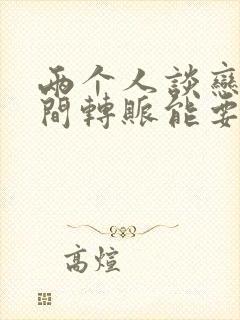 兩个人談戀
間轉賬能要
高煊